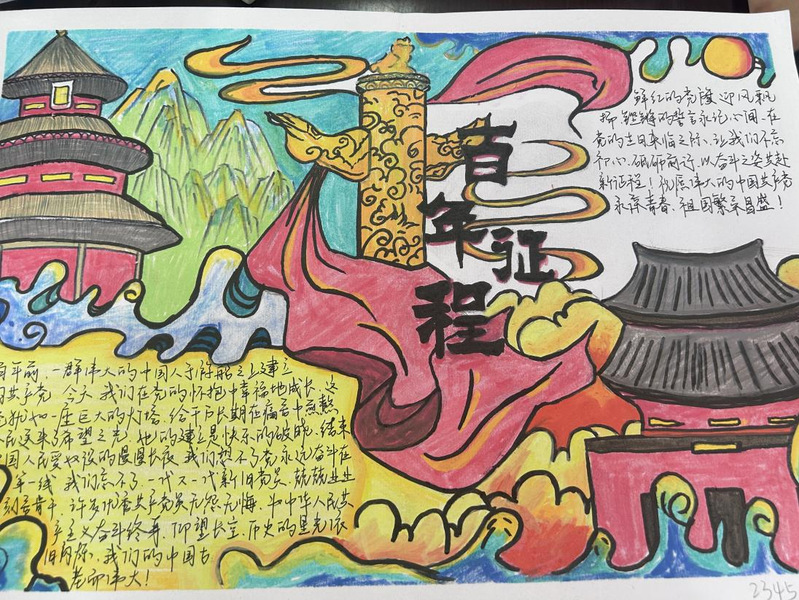 百年
征程
鲜红的党旗迎风飘
扬,铿锵的誓言永记心间,在
党的生日来临之际,让我们不忘
初心,砥砺前行,以奋斗之姿共赴
新征程!祝愿伟大的中国共产党
永葆青春,祖国繁荣昌盛!
百年前,一群伟大的中国人于游船之上建立
共产党 今天,我们在党的怀抱中幸福地成长,这
犹如一座巨大的灯塔,给于长期在痛苦中煎熬
人民送来了希望之光,他的建立是快乐的破晓,结束
国人民受奴役的漫漫长夜,我们忘不了党永远奋斗在
第一线,我们忘不了一代又一代新旧党员,兢兢业业
刻苦肯干,许多优秀共产党员无怨无悔,为中华人民共
产主义奋斗终身,仰望长空,历史的星光依
旧闪烁,我们的中国古
老而伟大!
2345